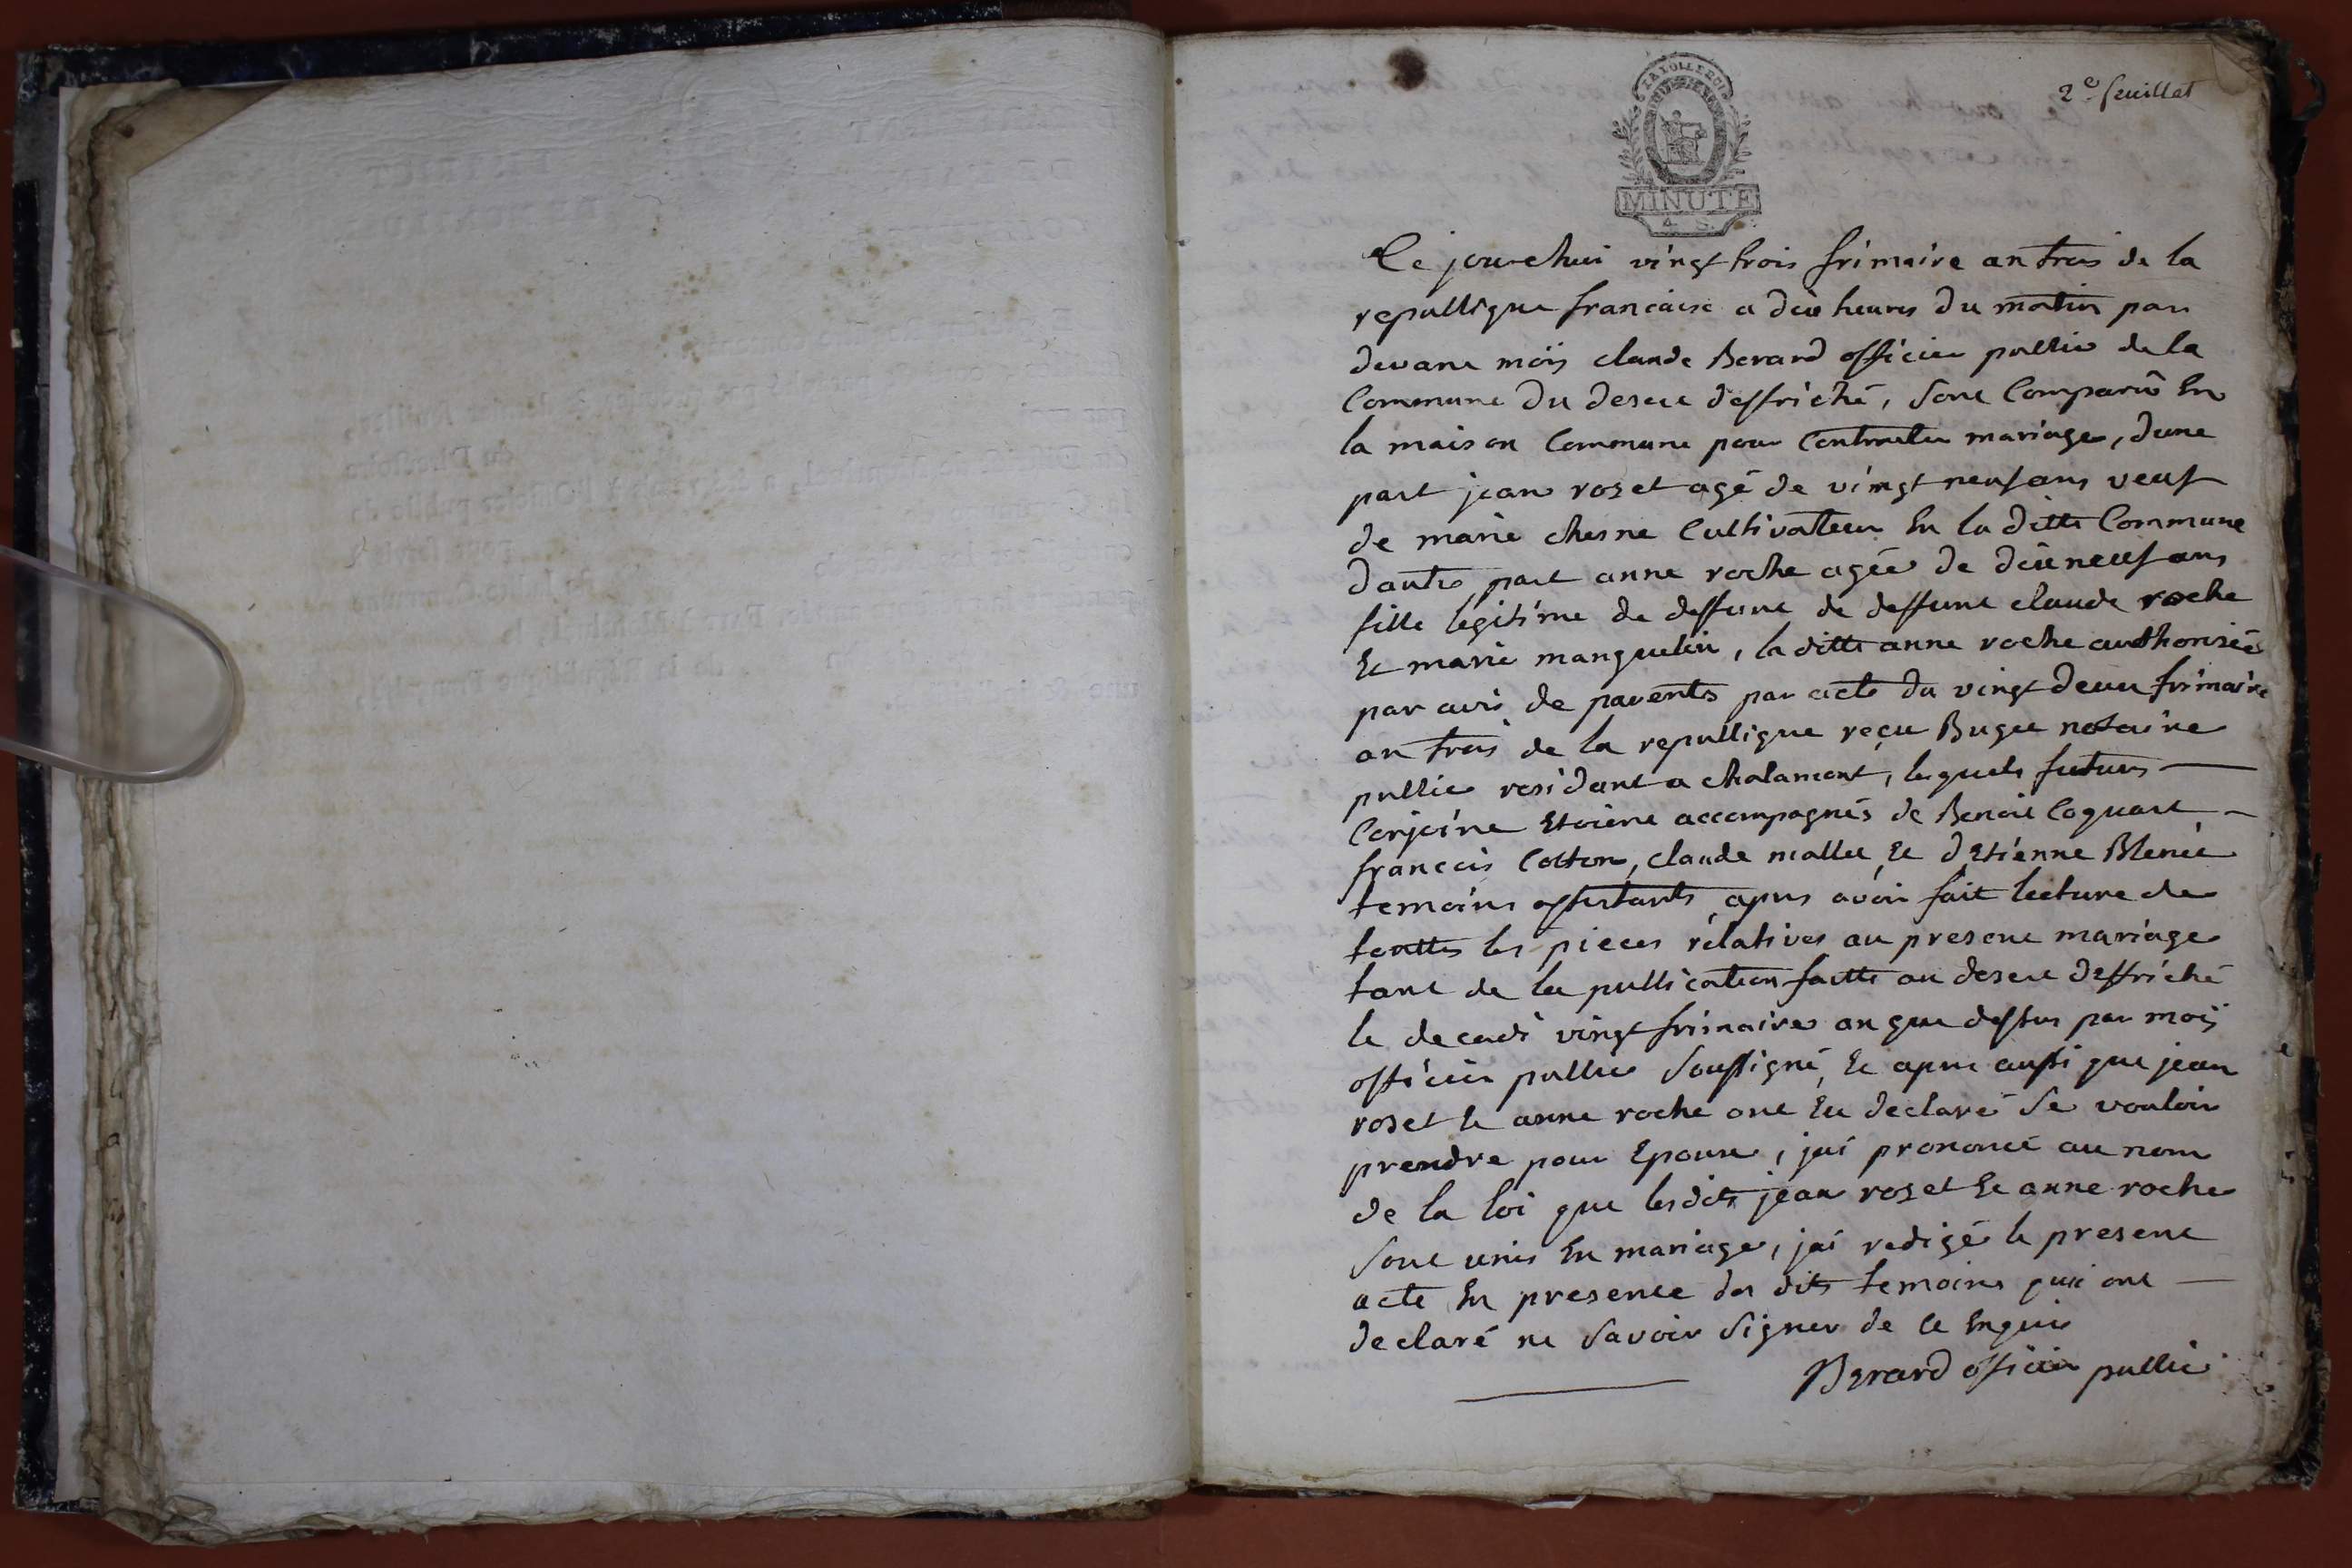 2e feuillet
LA LOI LE ROI
MINUTE
4. S.
Ce jourdhui vingt trois frimaire an trois de la
republique francaise a dix heures du matin par
devant moy claude Berard officier public de la
Commune du desert deffriché, sont Comparu En
la maison Commune pour Contracter mariage, dune
part jean roset agé de vingt neuf ans veuf
de marie chesne Cultivateur En la ditte Commune
dautre part anne roche agée de dix neuf ans
fille legitime de deffunt de deffunt claude roche
Et marie manguelin, la ditte anne roche authorisée
par avis de parents par acte du vingt deux frimaire
an trois de la republique reçu Buget notaire
public residant a chalamont, lesquels futurs
Conjoint Etoient accompagnés de Benoit Coquart
francois Cotton, claude mallet Et detienne Blenié
temoins assistants, apres avoir fait lecture de
touttes les pieces rélatives au present mariage
tant de la publication faitte au desert deffriché
le decadi vingt frimaire an que dessus par moy
officier public Soussigné, Et apres aussi que jean
roset Et anne roche ont Eu declaré Se vouloir
prendre pour Epoux, jai prononcé au nom
de la loi que lesdits jean roset Et anne roche
Sont unis En mariage, jai redigé le present
acte En presence des dits temoins qui ont
declaré ne Savoir Signer de ce Enquis
Berard officier public